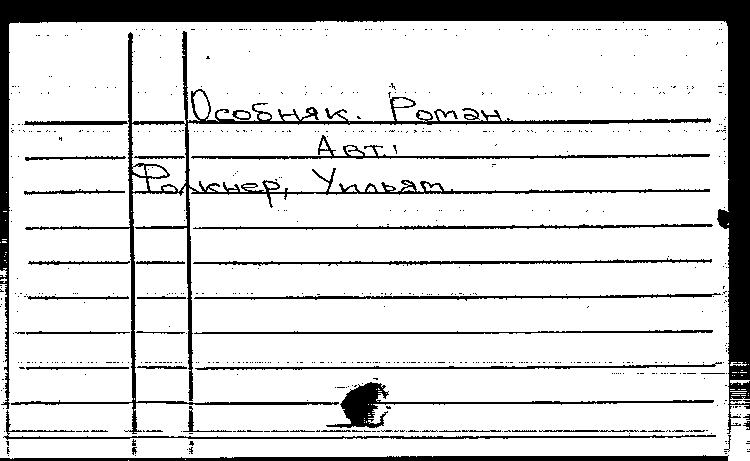 Особняк. Роман.
Авт.:
Фолкнер, Уильям.